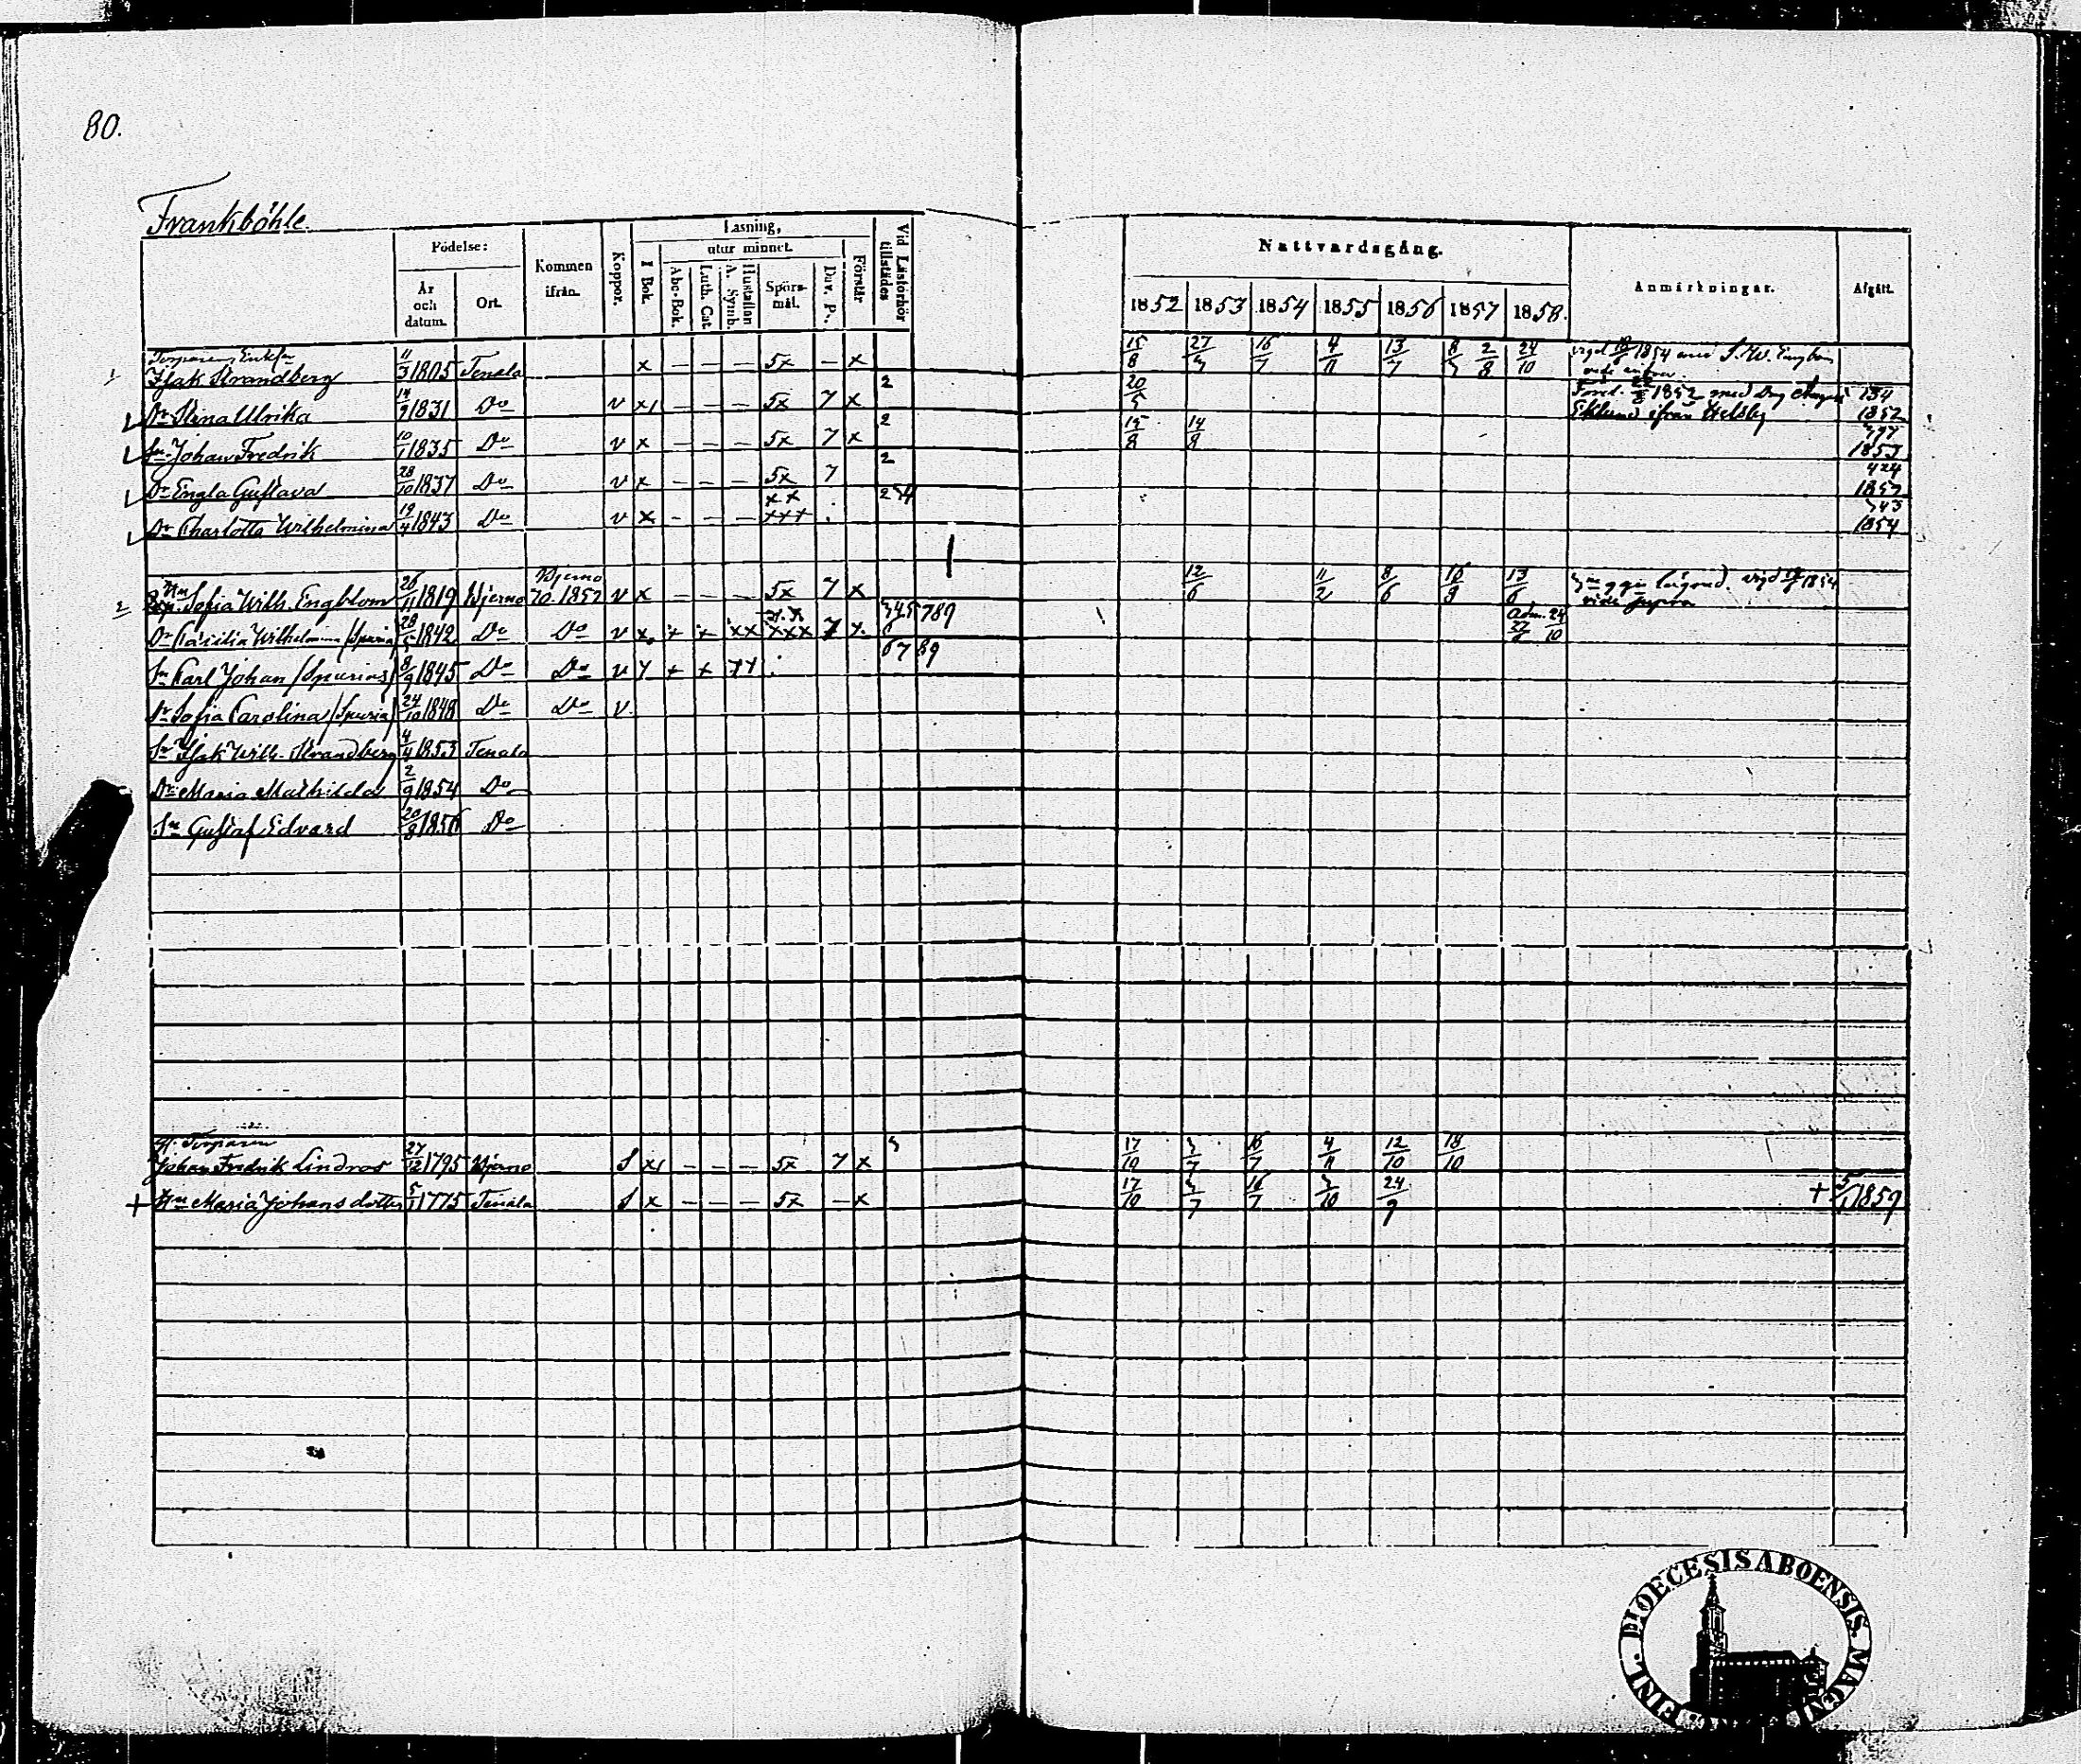 80.
Frankböhle.
Födelse:
År och datum.
Ort.
Kommen ifrån.
Koppor.
Läsning,
utur minnet.
I Bok.
Abc-Bok.
Luth. Cat.
Hustaflan A. Symb.
Spörsmål.
Dav. Ps.
Förstår
Vid Läsförhör tillstädes
Nattvardsgång.
1852 1853 1854 1855 1856 1857 1858.
Anmärkningar.
Afgått.
1 Torparen Enkl.
Isak Strandberg 11/3 1805 Tenala x – – – 5x – x 15/8 27/3 16/7 4/11 13/7 8/3 2/8 24/10 vigd 1854 med S. W.
Dr Stina Ulrika 14/9 1831 Do v x – – – 5x 7 x 2 20/5 1852 med Eklund ifrån 134 1852
Sn Johan Fredrik 10/1 1835 Do v x – – – 5x 7 x 2 15/8 14/8 1853
Dr Engla Gustava 28/10 1837 Do v x – – – 5x 7 2 424 1852
Dr Charlotta Wilhelmina 19/4 1843 Do v x – – – xx xxx 2 54 343 1854
2 Hu Sofia Wilh. Engblom 26/11 1819 Bjerno Bjerno 70. 1852 v x – – – 5x 7 x 12/6 11/2 8/6 16/8 13/6 vigd 1854
vide supra
Dr Cæcilia Wilhelmina (Spuria) 28/5 1842 Do Do v x + + xx xxx 7 x. 345789 6 Adm. 24/10
Sn Carl Johan (Spurius) 8/9 1845 Do Do v + + 6789
Dr Sofia Carolina (Spuria) 24/10 1848 Do Do v
Sn Isak Wilh. Strandberg 4/4 1853 Tenala
Dr Maria Mathilda 2/9 1854 Do
Sn Gustaf Edvard 20/8 1856 Do
Torparen
Johan Fredrik Lindros 27/12 1795 Bjerno S x – – – 5x 7 x 17/10 3/7 16/7 4/11 12/10 18/10
+ Hu Maria Johansdotter 5/1 1775 Tenala S x – – – 5x – x 17/10 3/7 16/7 3/10 24/9 + 1859
DIOECESIS ABOENSIS